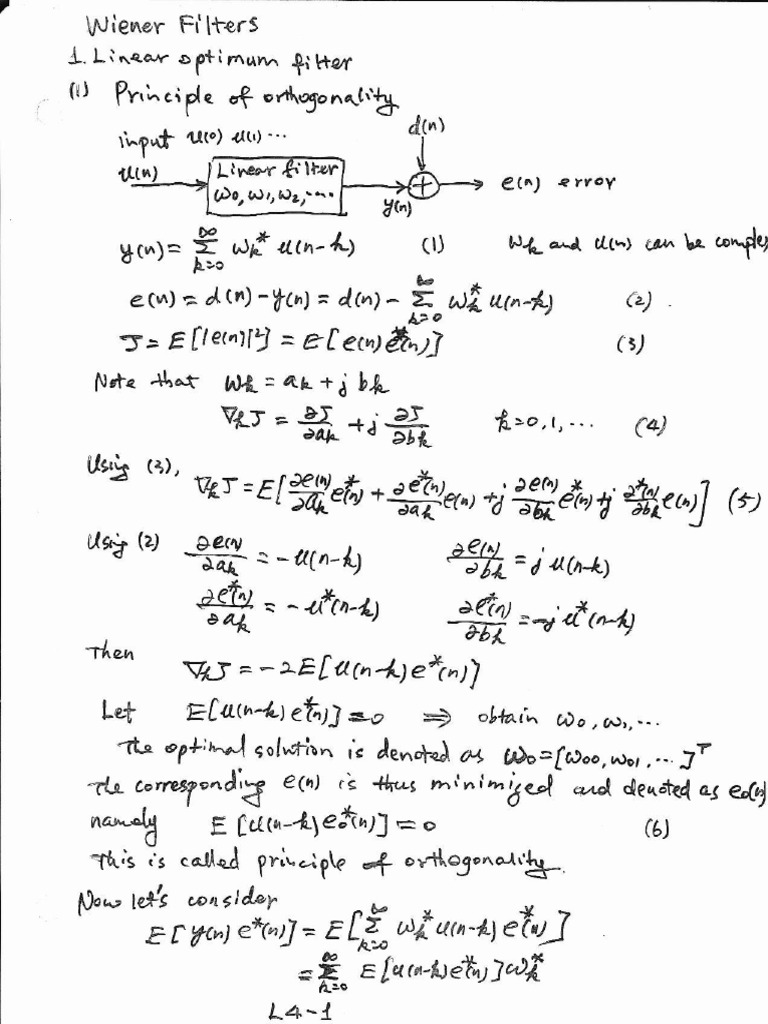 Wiener Filters
1. Linear optimum filter
(1) Principle of orthogonality
input u(0) u(1) ...
d(n)
u(n)
Linear filter
w0, w1, w2, ....
+
y(n)
e(n) error
y(n) = ∑_{k=0}^{∞} w_k^* u(n-k) (1) w_k and u(n) can be complex
e(n) = d(n) - y(n) = d(n) - ∑_{k=0}^{∞} w_k^* u(n-k) (2).
J = E[|e(n)|²] = E[e(n) e^*(n)] (3)
Note that w_k = a_k + j b_k
∇_k J = ∂J/∂a_k + j ∂J/∂b_k k=0,1,... (4)
Using (3), ∇_k J = E[∂e(n)/∂a_k e^*(n) + ∂e^*(n)/∂a_k e(n) + j ∂e(n)/∂b_k e^*(n) + j ∂^*(n)/∂b_k e(n)] (5)
Using (2) ∂e(n)/∂a_k = -u(n-k) ∂e(n)/∂b_k = j u(n-k)
∂e^*(n)/∂a_k = -u^*(n-k) ∂e^*(n)/∂b_k = -j u^*(n-k)
Then
∇_k J = -2E[u(n-k) e^*(n)]
Let E[u(n-k) e^*(n)] = 0 ⇒ obtain w0, w1, ...
The optimal solution is denoted as w_0 = [w_00, w_01, ...]^T
The corresponding e(n) is thus minimized and denoted as e_0(n)
namely E[u(n-k) e_0^*(n)] = 0 (6)
This is called principle of orthogonality.
Now let's consider
E[y(n) e^*(n)] = E[∑_{k=0}^{∞} w_k^* u(n-k) e^*(n)]
= ∑_{k=0}^{∞} E[u(n-k) e^*(n)] w_k^*
L4-1